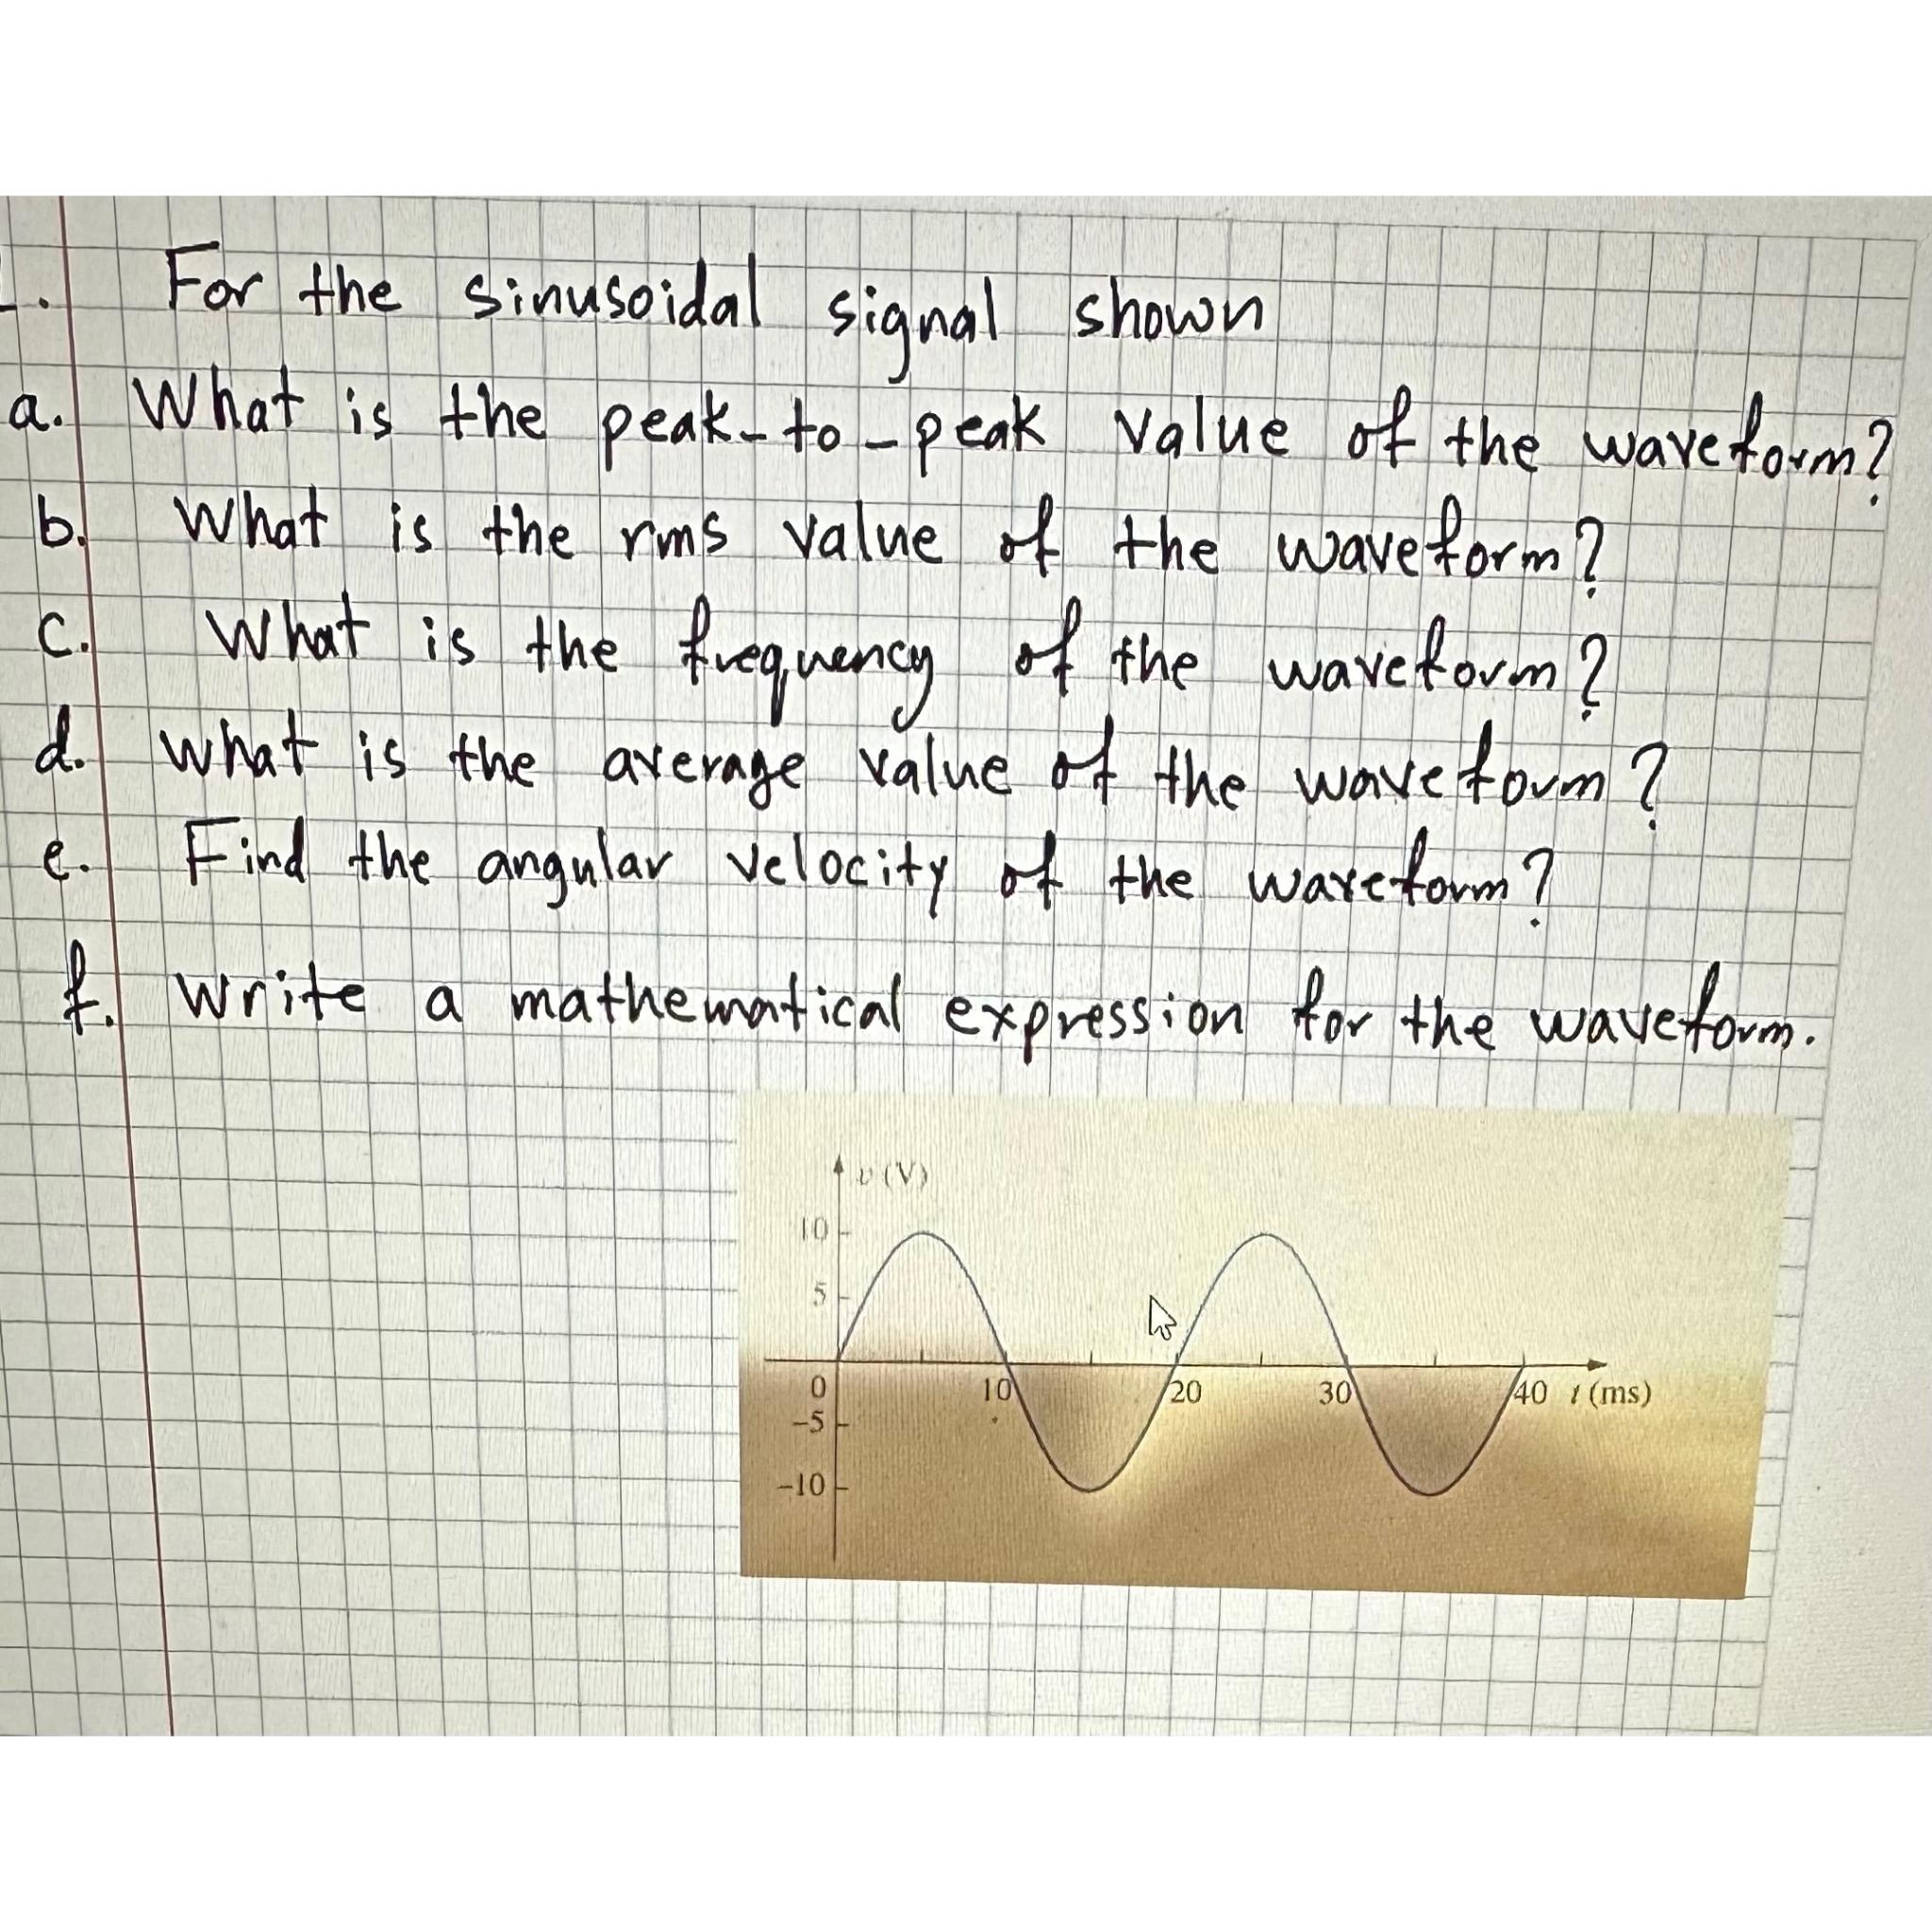 For the sinusoidal signal shown
a. What is the peak-to-peak value of the waveform?
b. What is the rms value of the waveform?
c. What is the frequency of the waveform?
d. What is the average value of the waveform?
e. Find the angular velocity of the waveform?
f. Write a mathematical expression for the waveform.
v (V)
10
5
0 10 20 30 40 t (ms)
-5
-10